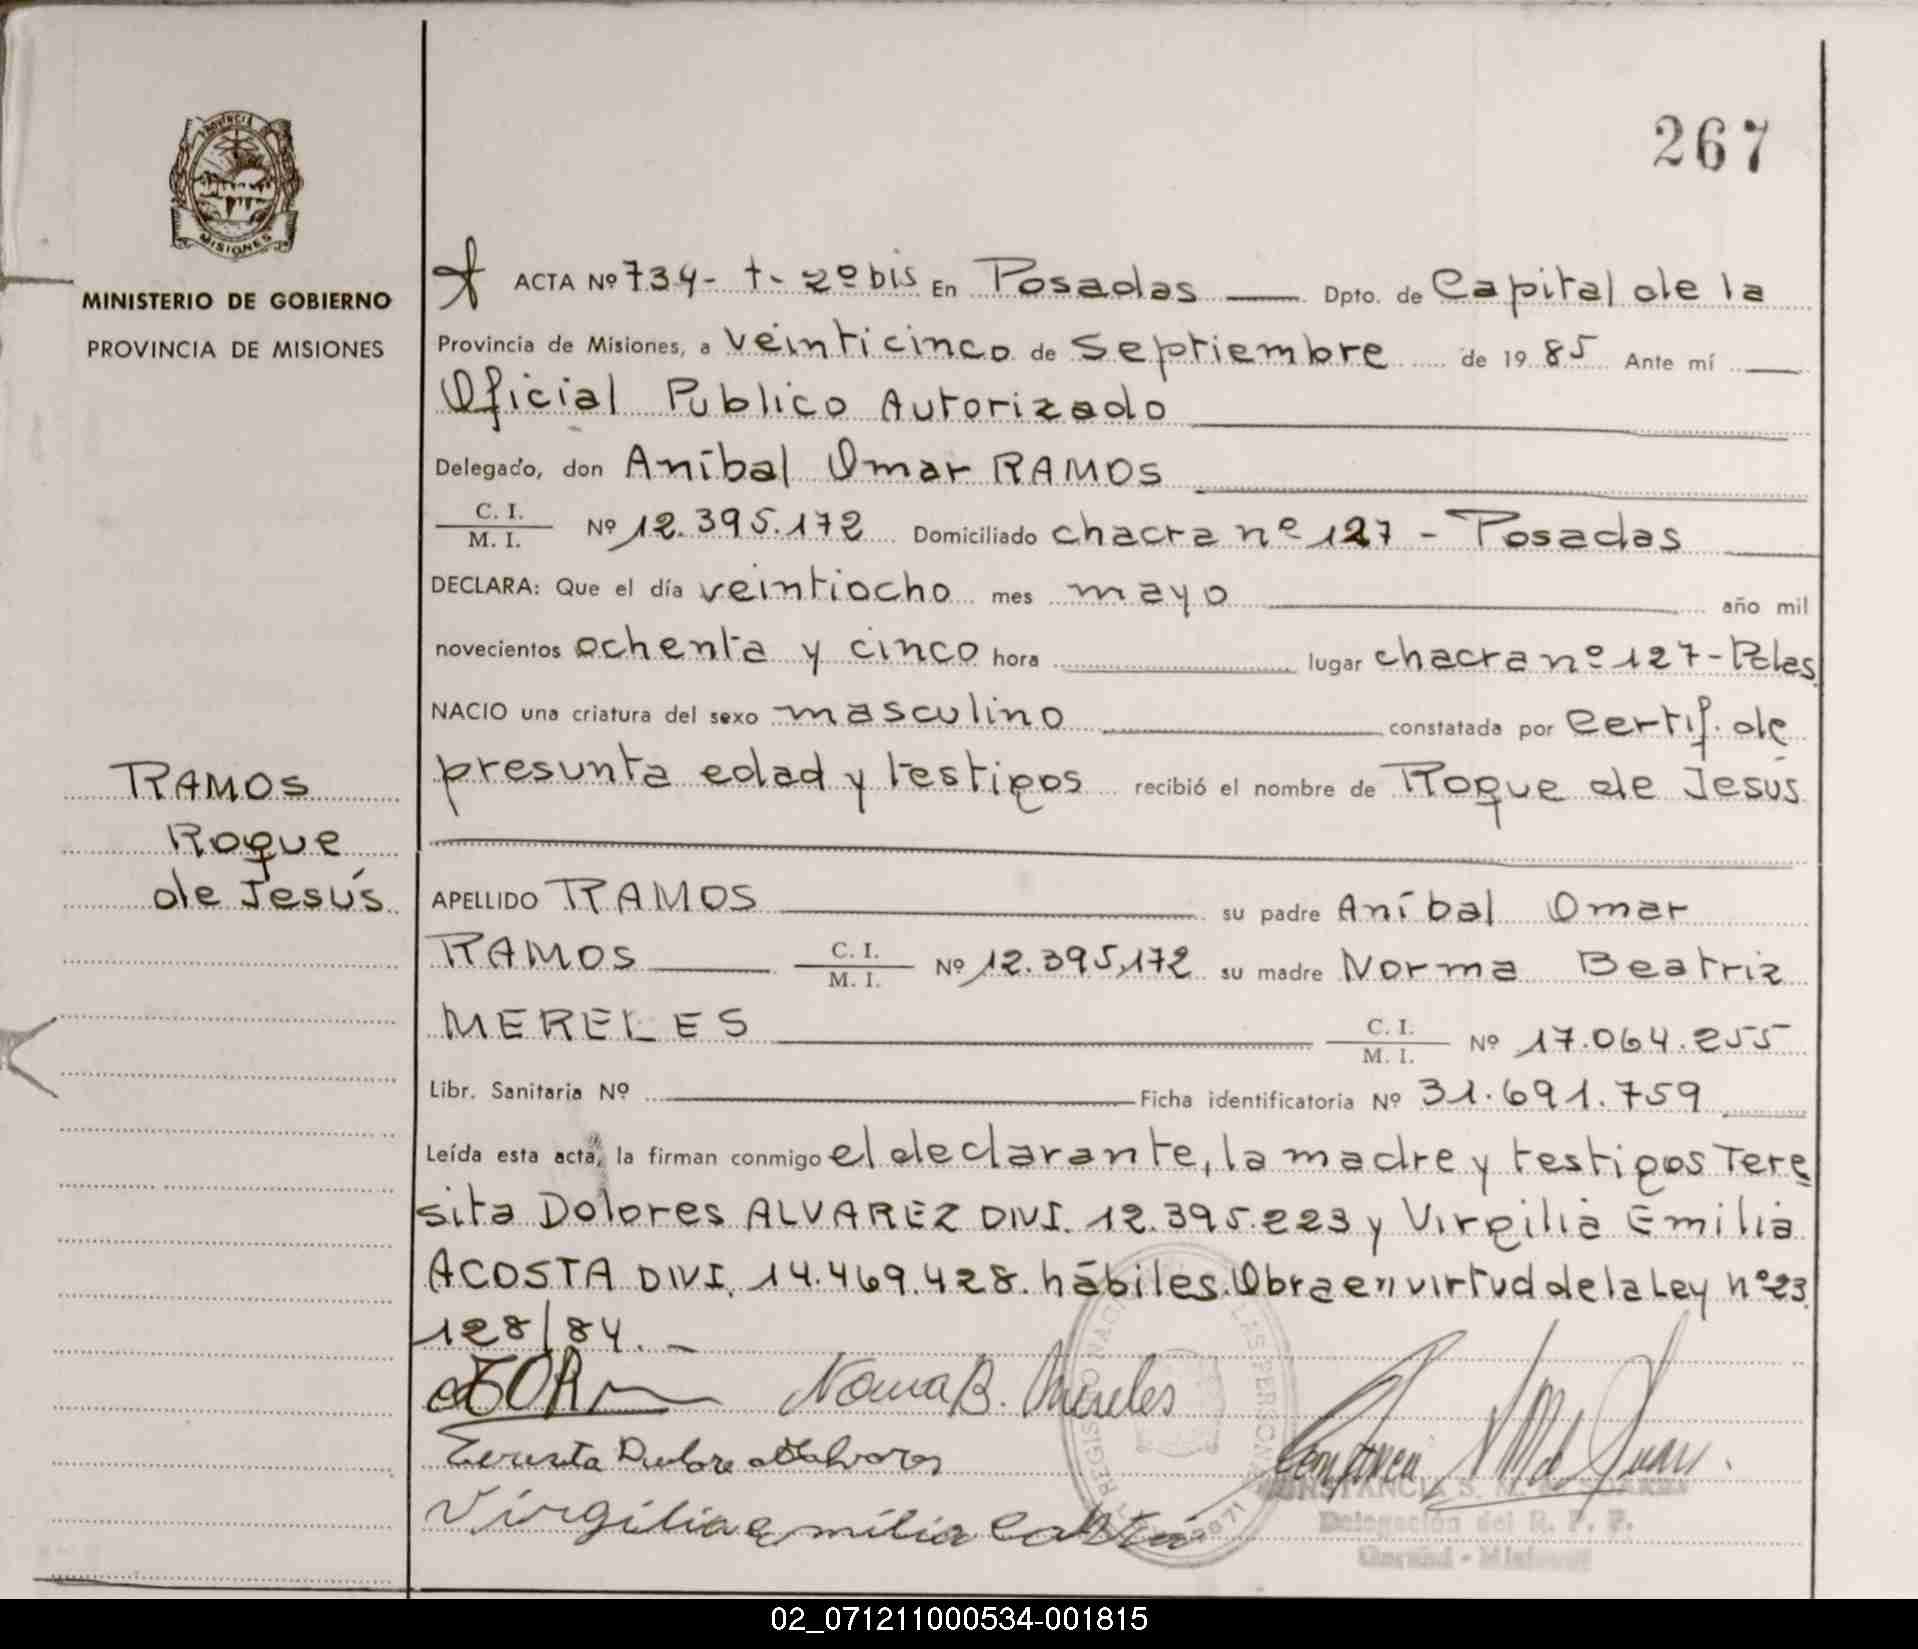 267
PROVINCIA
MISIONES
MINISTERIO DE GOBIERNO
PROVINCIA DE MISIONES
RAMOS
Roque
de Jesús
ACTA Nº 734 - t - 2º bis En Posadas Dpto. de Capital de la
Provincia de Misiones, a veinticinco de septiembre de 19 85 Ante mí
Oficial Publico Autorizado
Delegado, don Aníbal Omar RAMOS
C. I.
M. I. Nº 12.395.172 Domiciliado chacra nº 127 - Posadas
DECLARA: Que el día veintiocho mes mayo año mil
novecientos ochenta y cinco hora lugar chacra nº 127 - Pdas
NACIO una criatura del sexo masculino constatada por certif. de
presunta edad y testigos recibió el nombre de Roque de Jesús
APELLIDO RAMOS su padre Aníbal Omar
RAMOS C. I. M. I. Nº 12.395,172 su madre Norma Beatriz
MERELES C. I. M. I. Nº 17.064.255
Libr. Sanitaria Nº Ficha identificatoria Nº 31.691.759
Leída esta acta, la firman conmigo el declarante, la madre y testigos Tere
sita Dolores ALVAREZ DNI. 12.395.223 y Virgilia Emilia
ACOSTA DNI. 14.469.428. hábiles. Obra en virtud de la Ley nº 23
128/84. -
Norma B. Mereles
Virgilia Emilia
Delegación del R. P. P.
02_071211000534-001815